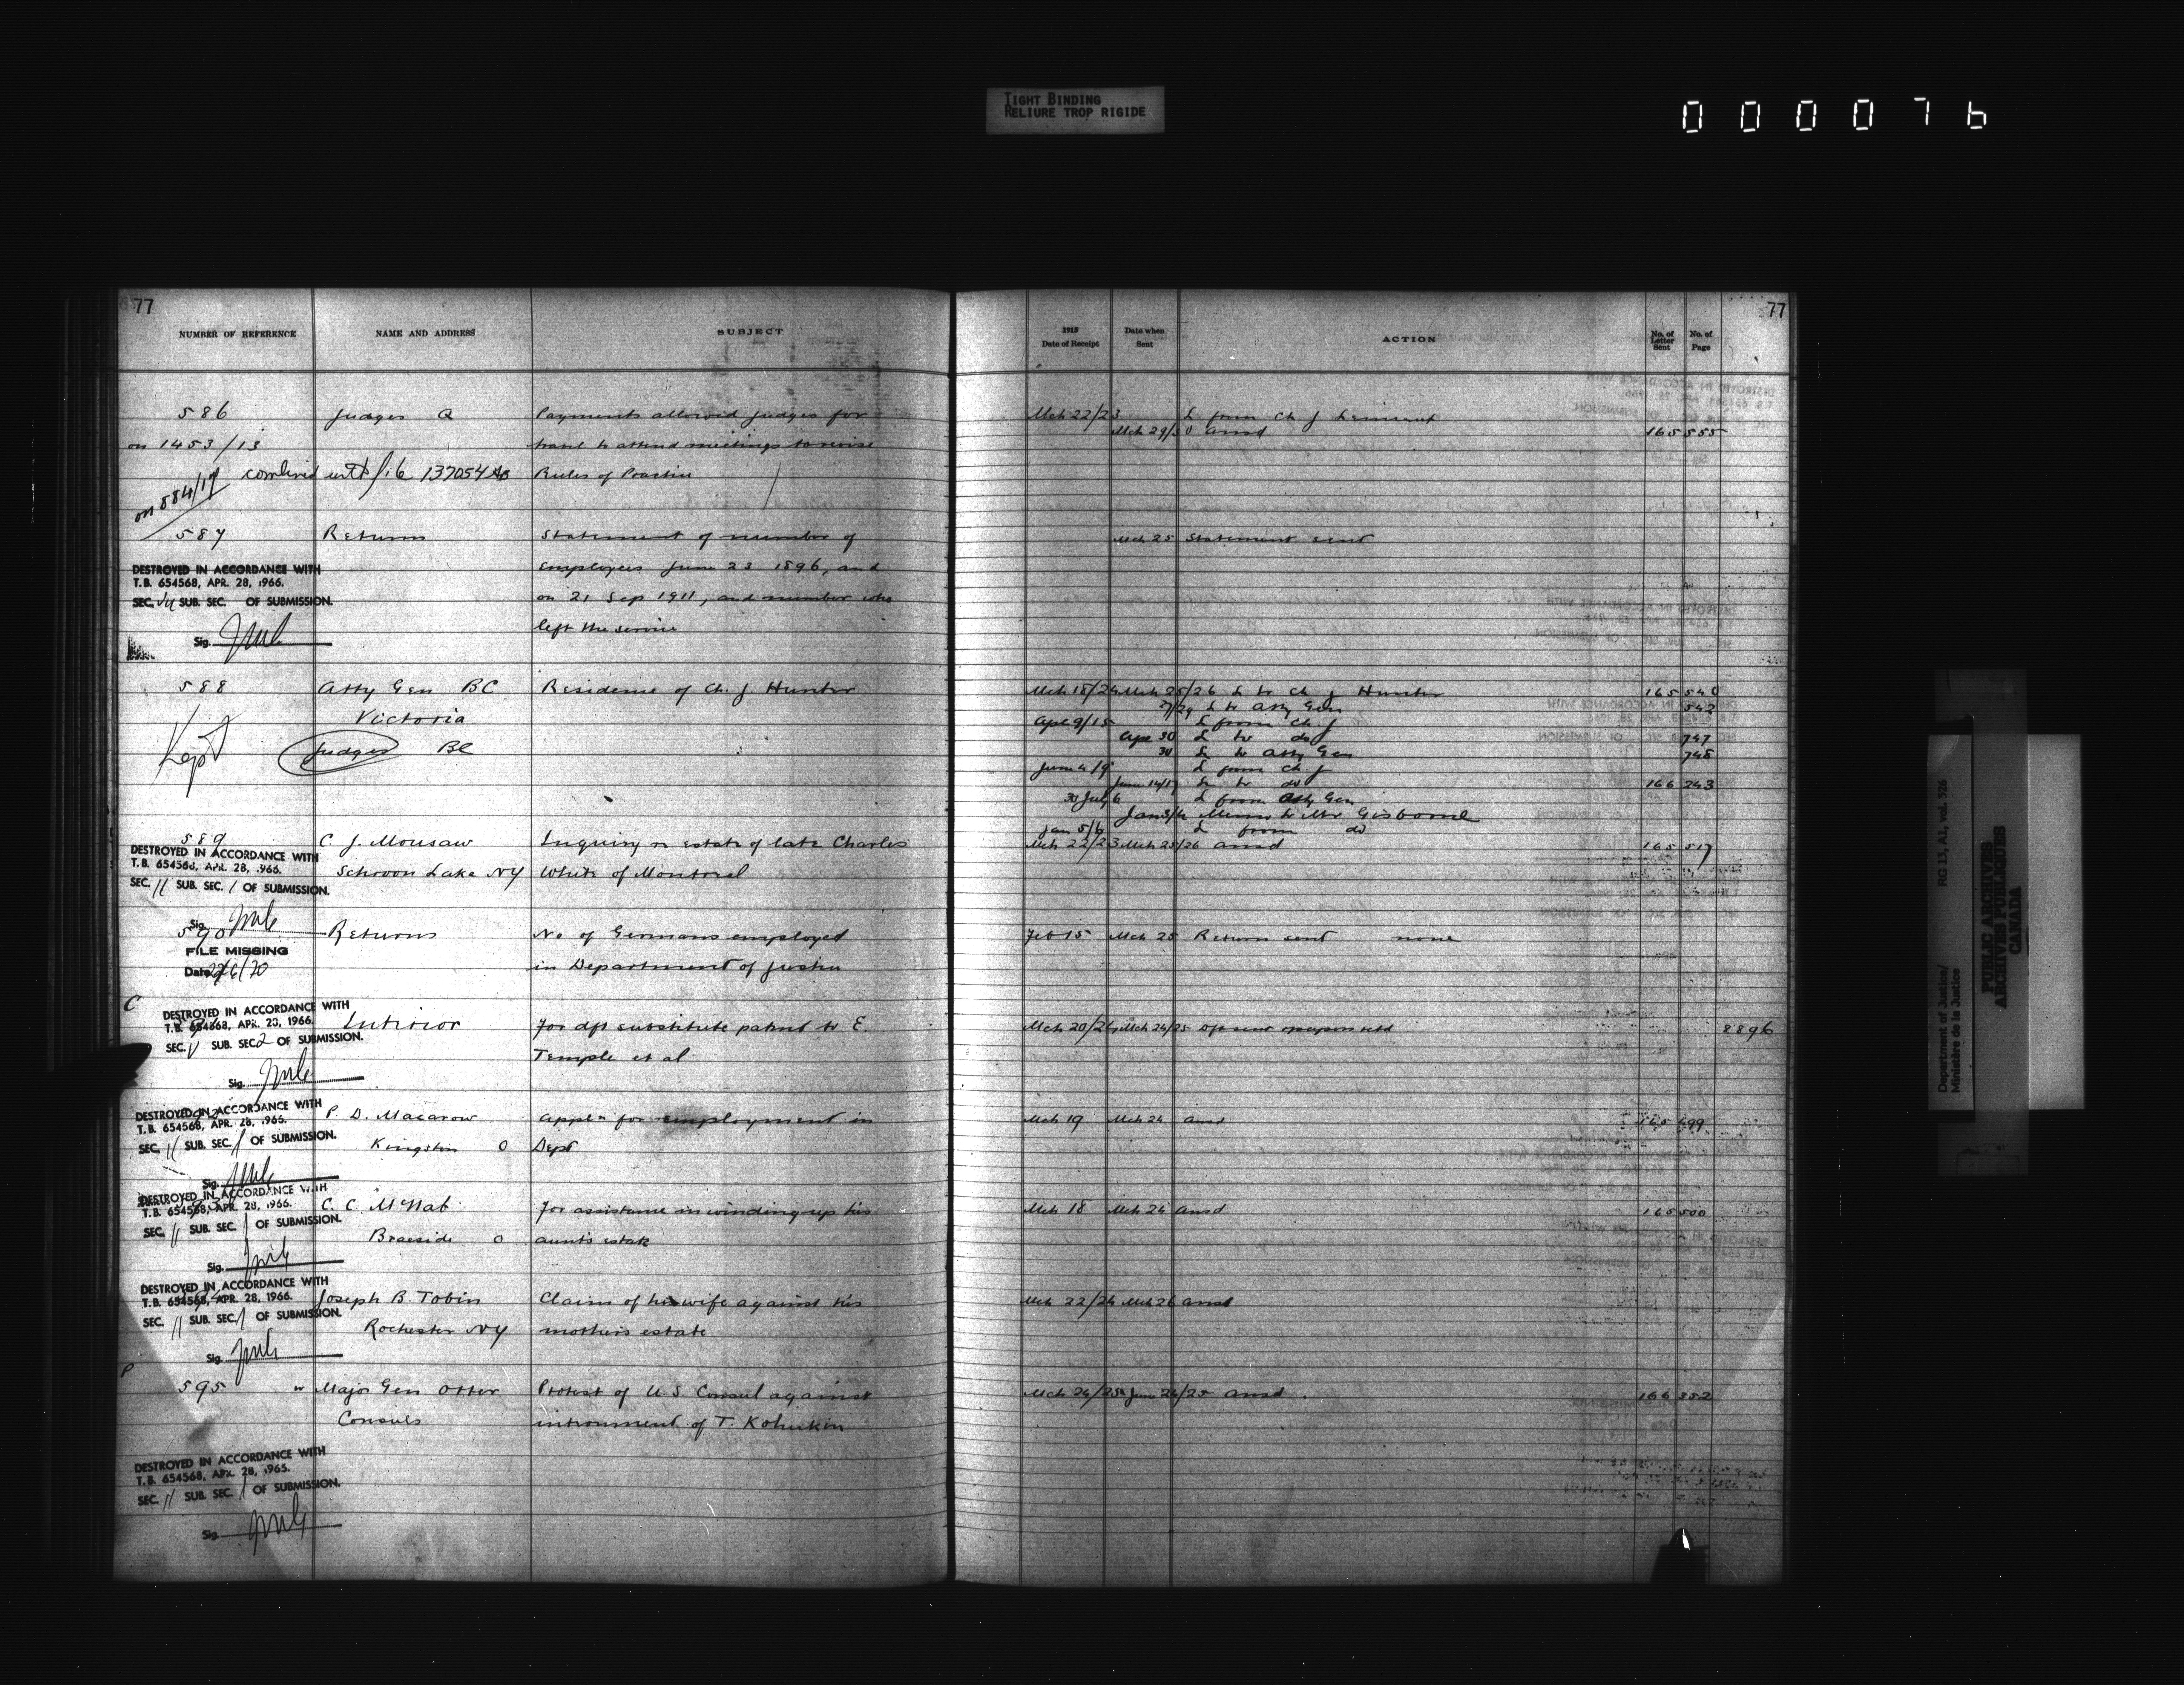 TIGHT BINDING
RELIURE TROP RIGIDE
000076
77
NUMBER OF REFERENCE NAME AND ADDRESS SUBJECT
586 Judges Q Payments allowed Judges for
on 1453/13 travel to attend meetings to revise
combined with file 137054 Rules of Practice
on 584/17
587 Returns Statement of number of
DESTROYED IN ACCORDANCE WITH employees June 23 1896, and
T.B. 654568, APR. 28, 1966.
SEC. SUB. SEC. OF SUBMISSION. on 21 Sep 1911, and number who
left the service
Sig.
588 Atty Gen BC Residence of Ch. J. Hunter
Victoria
Kept Judges BC
589 C. J. Mousaw Inquiry re estate of late Charles
DESTROYED IN ACCORDANCE WITH
T.B. 654568, APR. 28, 1966. Schroon Lake NY White of Montreal
SEC. 11 SUB. SEC. 1 OF SUBMISSION.
Sig.
590 Returns No of Germans employed
FILE MISSING
Date in Department of Justice
C
DESTROYED IN ACCORDANCE WITH
T.B. 654568, APR. 28, 1966. Interior For dft substitute patent to E.
SEC. SUB. SEC. 2 OF SUBMISSION.
Temple et al
Sig.
DESTROYED IN ACCORDANCE WITH P. D. Macarow Appln for employment in
T.B. 654568, APR. 28, 1966.
SEC. 11 SUB. SEC. 1 OF SUBMISSION. Kingston O Dept
Sig.
DESTROYED IN ACCORDANCE WITH
T.B. 654568, APR. 28, 1966. C. C. McNab For assistance in winding up his
SEC. 11 SUB. SEC. 1 OF SUBMISSION.
Braeside O aunt's estate
Sig.
DESTROYED IN ACCORDANCE WITH
T.B. 654568, APR. 28, 1966. Joseph B. Tobin Claim of his wife against his
SEC. 11 SUB. SEC. 1 OF SUBMISSION.
Rochester NY mother's estate
Sig.
P
595 Major Gen Otter Protest of U.S. Consul against
Consuls internment of T.
DESTROYED IN ACCORDANCE WITH
T.B. 654568, APR. 28, 1966.
SEC. 11 SUB. SEC. 1 OF SUBMISSION.
Sig.
77
1915
Date of Receipt Date when Sent ACTION No. of Letter Sent No. of Page
Mch 22/23 L from Ch J
Mch 29/30 ansd 165 555
Mch 25 Statement sent
Mch 18/24 Mch 25/26 L to Ch J Hunter 165 540
27/29 L to Atty Gen 542
Apl 9/15 L from Ch. J
Apl 30 L to do 747
30 L to Atty Gen 748
June 4/9 L from Ch J
June 14/17 L to do 166 243
30 July 6 L from Atty Gen
Jan 3/4 Memo to Mr Gisborne
Jan 5/6 L from do
Mch 22/23 Mch 25/26 ansd 165 517
Feb 15 Mch 25 Return sent none
Mch 20/24 Mch 24/25 Dft sent papers retd 8896
Mch 19 Mch 24 ansd 165 499
Mch 18 Mch 24 ansd 165 500
Mch 22/24 Mch 26 ansd
Mch 24/25 June 24/25 ansd. 166 352
Department of Justice/ RG 13, A1, vol. 526
Ministère de la Justice
PUBLIC ARCHIVES
ARCHIVES PUBLIQUES
CANADA